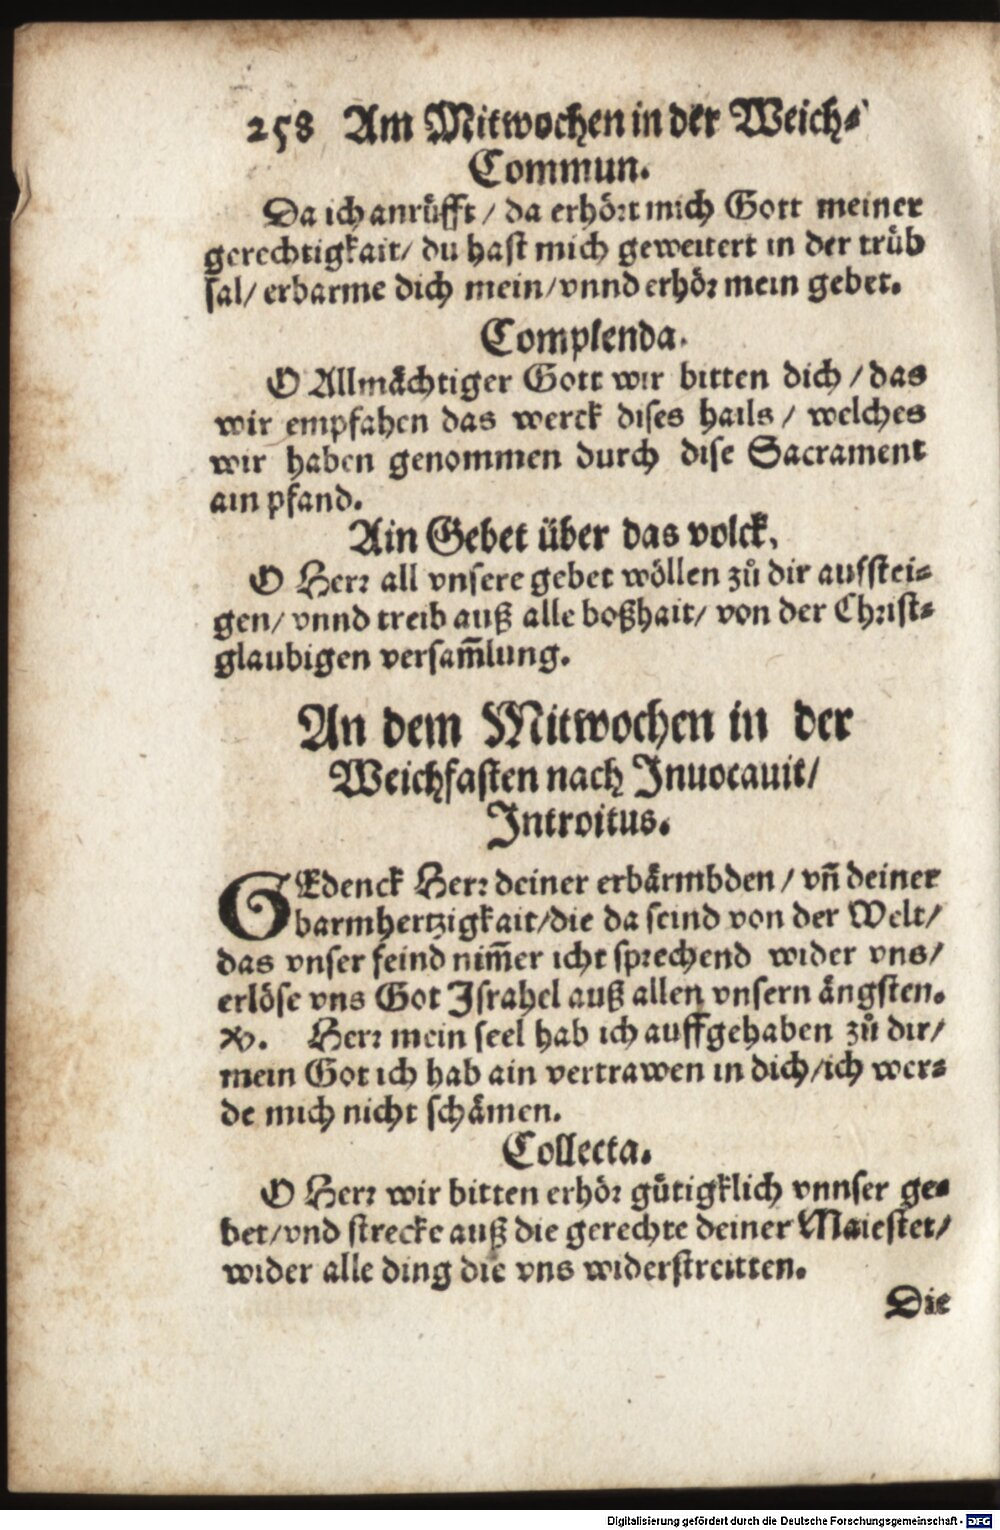 258 Am Mitwochen in der Weich-
Commun.
Da ich anrůfft / da erhört mich Gott meiner
gerechtigkait/ du hast mich geweitert in der trüb
sal/ erbarme dich mein/vnnd erhör mein gebet.
Complenda.
O Allmächtiger Gott wir bitten dich / das
wir empfahen das werck dises hails / welches
wir haben genommen durch dise Sacrament
ain pfand.
Ain Gebet über das volck.
O Herr all vnsere gebet wöllen zů dir aufstei-
gen/ vnnd treib auß alle boßhait/ von der Christ-
glaubigen versam̄lung.
An dem Mitwochen in der
Weichfasten nach Inuocauit/
Introitus.
GEdenck Herr deiner erbärmbden / vn̄ deiner
barmhertzigkait/die da seind von der Welt/
das vnser feind nim̄er icht sprechend wider vns/
erlöse vns Got Israhel auß allen vnsern ängsten.
℣. Herr mein seel hab ich auffgehaben zů dir/
mein Got ich hab ain vertrawen in dich/ich wer-
de mich nicht schämen.
Collecta.
O Herr wir bitten erhör gütigklich vnnser ge-
bet/vnd strecke auß die gerechte deiner Maiestet/
wider alle ding die vns widerstreitten.
Die
Digitalisierung gefördert durch die Deutsche Forschungsgemeinschaft - DFG